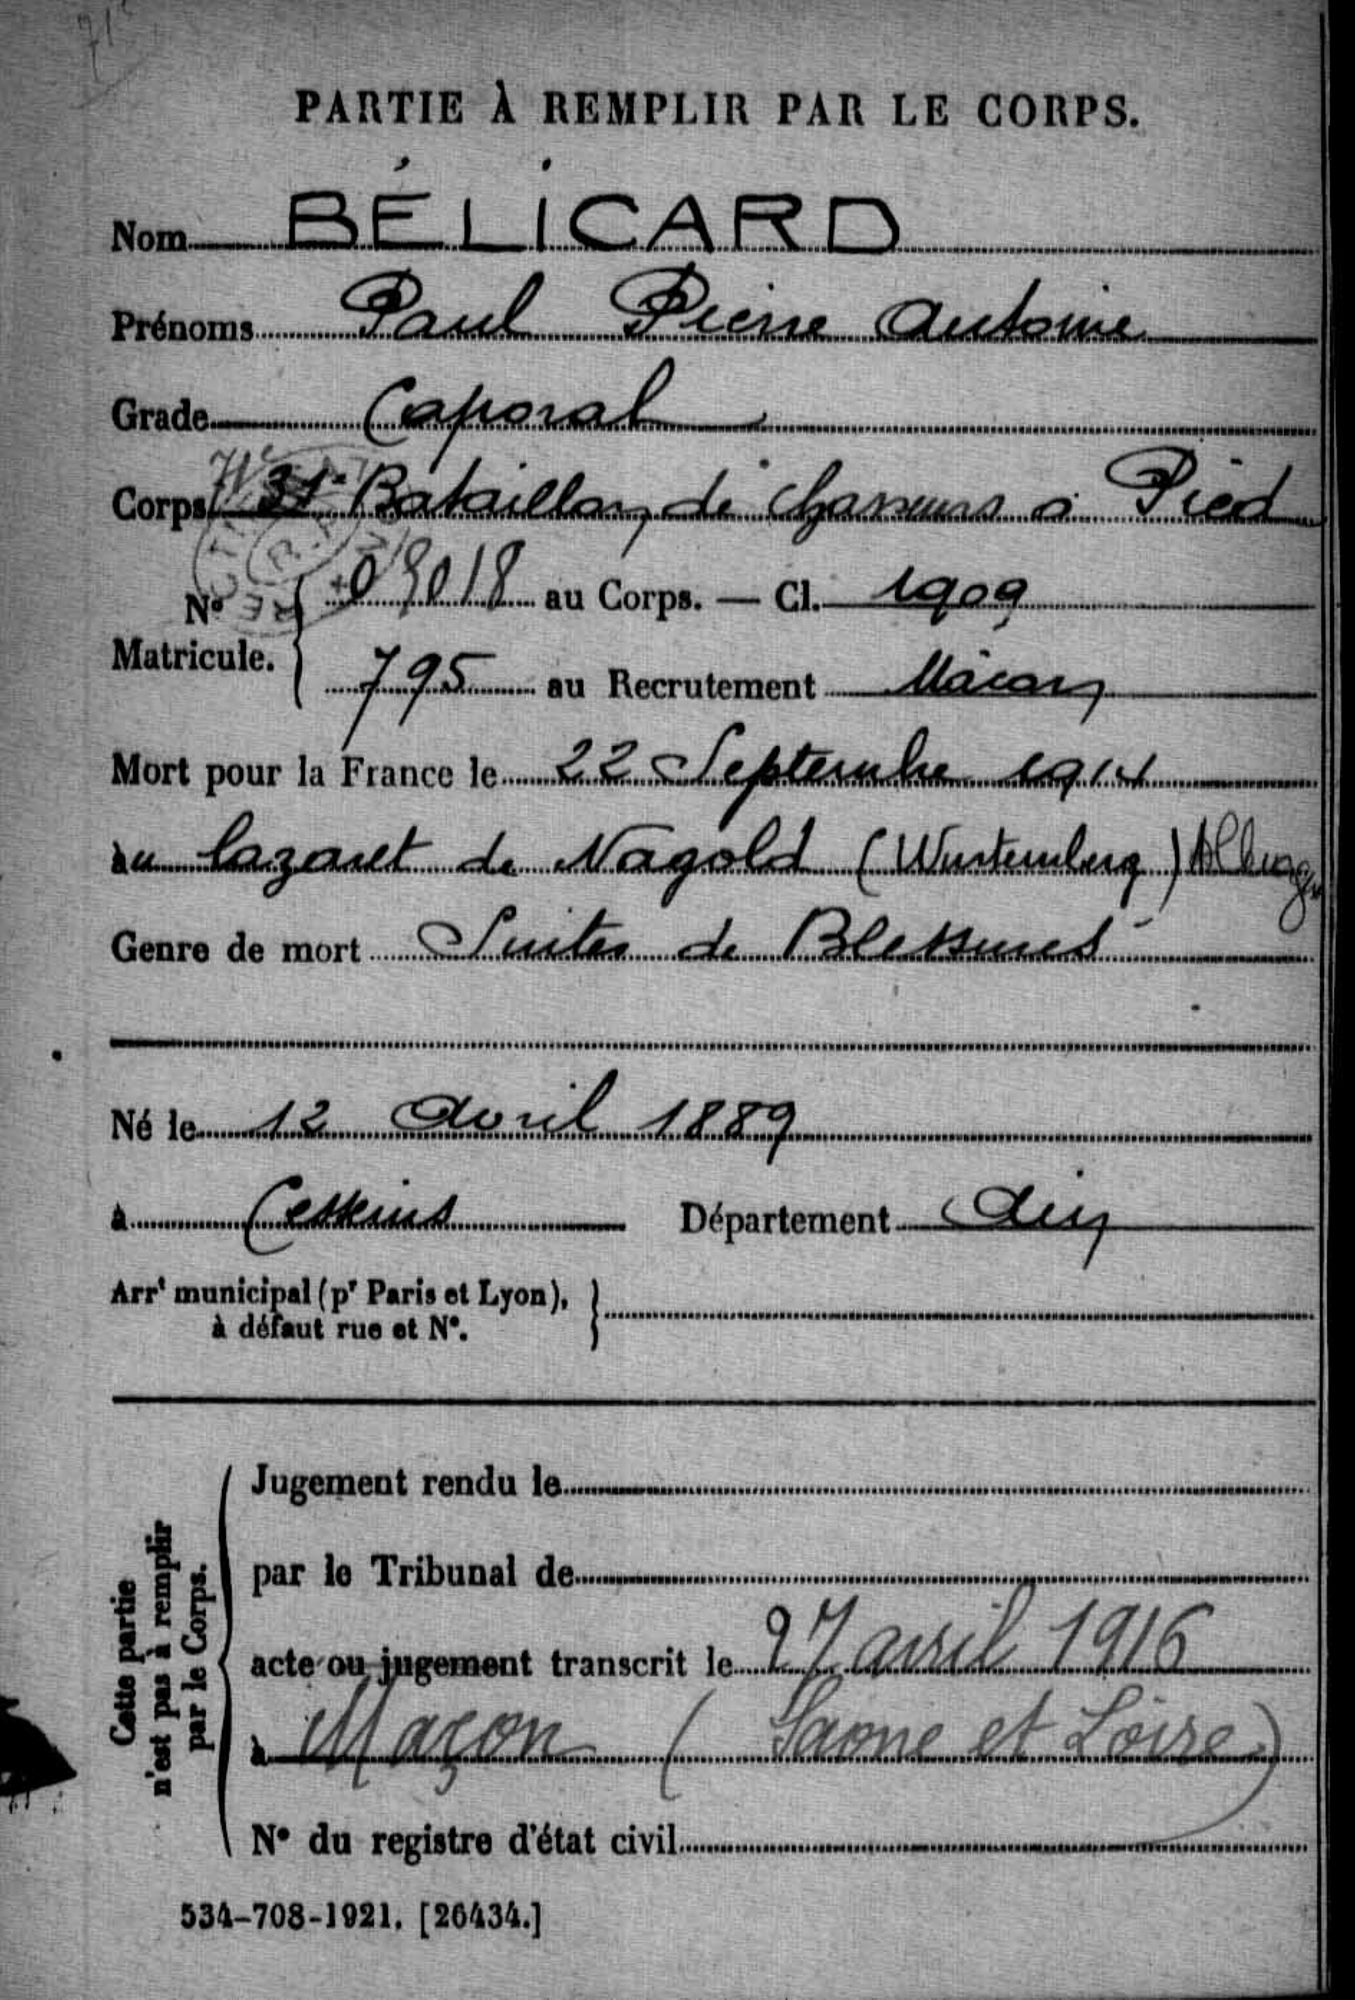 PARTIE À REMPLIR PAR LE CORPS.
Nom BÉLICARD
Prénoms Paul Pierre Antoine
Grade Caporal
Corps 31e Bataillon de Chasseurs à Pied
No Matricule. 09018 au Corps. — Cl. 1909
795 au Recrutement Mâcon
Mort pour la France le 22 Septembre 1914
au lazaret de Nagold (Wurtemberg)
Genre de mort Suites de Blessures
Né le 12 Avril 1889
à Cesseins Département Ain
Arrt municipal (pr Paris et Lyon),
à défaut rue et No.
Cette partie
n'est pas à remplir
par le Corps.
Jugement rendu le
par le Tribunal de
acte ou jugement transcrit le 27 avril 1916
à Maçon (Saone et Loire)
No du registre d'état civil
534-708-1921. [26434.]